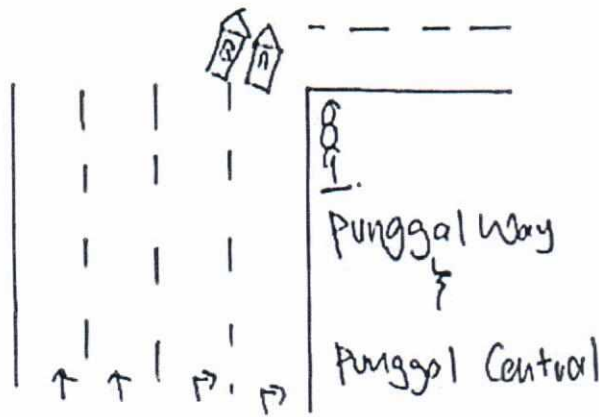 B A
Punggal Way
&
Punggol Central